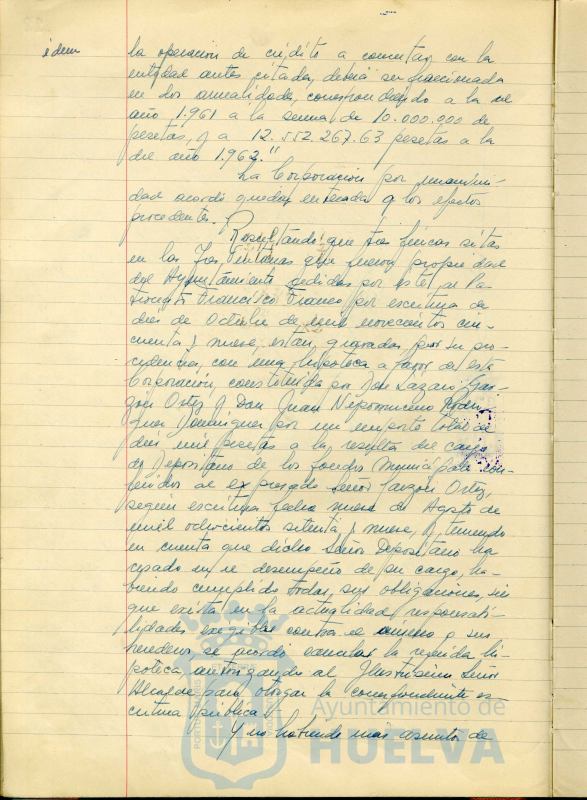 idem
la operación de crédito a concertar con la
entidad antes citada, deberá ser fraccionada
en dos anualidades, correspondiendo a la del
año 1.961 a la suma de 10.000.000 de
pesetas, y a 12.552.267.63 pesetas a la
del año 1.962."
La Corporación por unanimi-
dad acordó quedar enterada a los efectos
procedentes.
Resultando: que tres fincas sitas
en las Tres Ventanas que fueron propiedad
del Ayuntamiento cedidas por este al Pa-
tronato Francisco Franco por escritura de
dies de Octubre de mil novecientos cin-
cuenta y nueve, están gravadas, por su pro-
cedencia, con una hipoteca a favor de esta
Corporación, constituida por Don Lazaro Gar-
zón Ortiz y Don Juan Nepomuceno
Dominguez por un importe total de
diez mil pesetas a la resulta del cargo
de Depositario de los fondos Municipales con-
feridos al expresado Señor Garzón Ortiz,
según escritura fecha nueve de Agosto de
mil ochocientos setenta y nueve, y, teniendo
en cuenta que dicho Señor Depositario ha
cesado en el desempeño de su cargo, ha-
biendo cumplido todas sus obligaciones, sin
que exista en la actualidad responsabi-
lidades exigibles contra el mismo o sus
herederos se acordó cancelar la referida hi-
poteca, autorizando al Ilustrisimo Señor
Alcalde para otorgar la correspondiente es-
critura pública.
Y no habiendo mas asuntos de
Ayuntamiento de
HUELVA